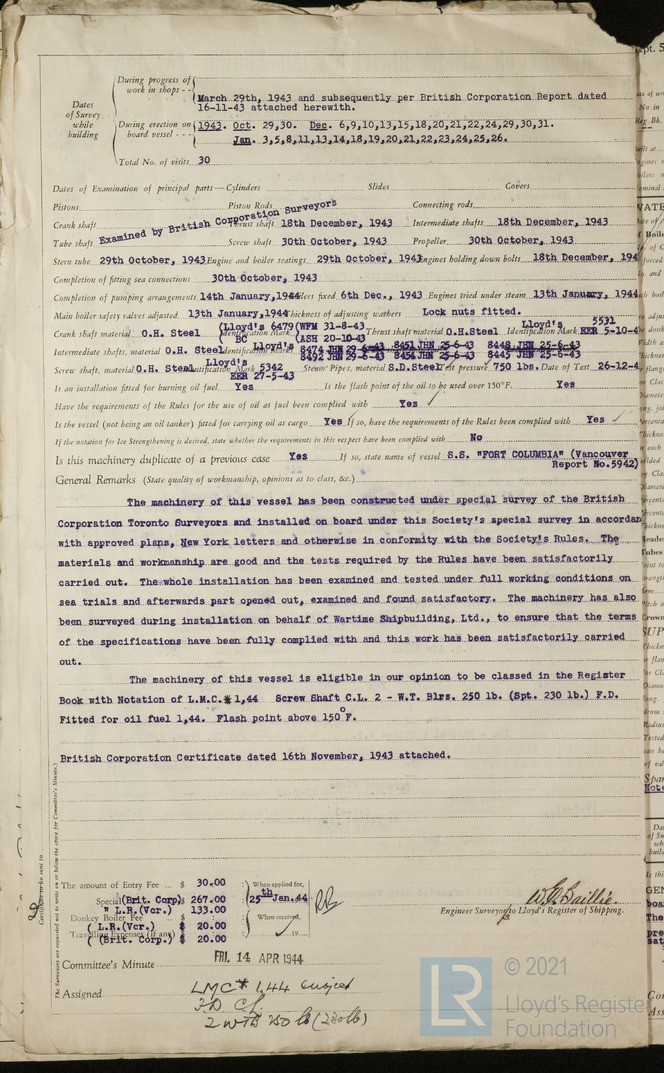 During progress of work in shops - -
March 29th, 1943 and subsequently per British Corporation Report dated
16-11-43 attached herewith.
Dates of Survey while building
During erection on board vessel - - -
1943. Oct. 29,30. Dec. 6,9,10,13,15,18,20,21,22,24,29,30,31.
Jan. 3,5,8,11,13,14,18,19,20,21,22,23,24,25,26.
Total No. of visits 30
Dates of Examination of principal parts—Cylinders Slides. Covers
Pistons Piston Rods Connecting rods
Examined by British Corporation Surveyors
Crank shaft Thrust shaft 18th December, 1943 Intermediate shafts 18th December, 1943
Tube shaft Screw shaft 30th October, 1943 Propeller 30th October, 1943
Stern tube 29th October, 1943 Engine and boiler seatings 29th October, 1943 Engines holding down bolts 18th December, 194
Completion of fitting sea connections 30th October, 1943
Completion of pumping arrangements 14th January, 1944 Boilers fixed 6th Dec., 1943 Engines tried under steam 13th January, 1944
Main boiler safety valves adjusted 13th January, 1944 Thickness of adjusting washers Lock nuts fitted.
Crank shaft material O.H. Steel Identification Mark (Lloyd's 6479 (WFM 31-8-43 BC (ASH 20-10-43 Thrust shaft material O.H.Steel Identification Mark Lloyd's 5531 EER 5-10-4
Intermediate shafts, material O.H. Steel Identification Marks Lloyd's 8474 JHN 29-6-43 8451 JHN 25-6-43 8448 JHN 25-6-43
8492 JHN 29-6-43 8454 JHN 25-6-43 8445 JHN 25-6-43
Screw shaft, material O.H. Steel Identification Mark Lloyd's 5342 EER 27-5-43 Steam Pipes, material S.D.Steel Test pressure 750 lbs. Date of Test 26-12-4
Is an installation fitted for burning oil fuel Yes Is the flash point of the oil to be used over 150°F. Yes
Have the requirements of the Rules for the use of oil as fuel been complied with Yes
Is the vessel (not being an oil tanker) fitted for carrying oil as cargo Yes If so, have the requirements of the Rules been complied with Yes
If the notation for Ice Strengthening is desired, state whether the requirements in this respect have been complied with No
Is this machinery duplicate of a previous case Yes If so, state name of vessel S.S. "FORT COLUMBIA" (Vancouver
Report No.5942)
General Remarks (State quality of workmanship, opinions as to class, &c.)
The machinery of this vessel has been constructed under special survey of the British
Corporation Toronto Surveyors and installed on board under this Society's special survey in accordan
with approved plans, New York letters and otherwise in conformity with the Society's Rules. The
materials and workmanship are good and the tests required by the Rules have been satisfactorily
carried out. The whole installation has been examined and tested under full working conditions on
sea trials and afterwards part opened out, examined and found satisfactory. The machinery has also
been surveyed during installation on behalf of Wartime Shipbuilding, Ltd., to ensure that the terms
of the specifications have been fully complied with and this work has been satisfactorily carried
out.
The machinery of this vessel is eligible in our opinion to be classed in the Register
Book with Notation of L.M.C.* 1,44 Screw Shaft C.L. 2 - W.T. Blrs. 250 lb. (Spt. 230 lb.) F.D.
Fitted for oil fuel 1,44. Flash point above 150°F.
British Corporation Certificate dated 16th November, 1943 attached.
The amount of Entry Fee ... $ 30.00 When applied for,
Special (Brit. Corp) $ 267.00 25th Jan. 44
" L.R.(Vcr.) 133.00
Donkey Boiler Fee When received,
( L.R.(Vcr.) $ 20.00
Travelling Expenses (if any)
( (Brit. Corp.) $ 20.00 19
W.C. Baillie.
Engineer Surveyor to Lloyd's Register of Shipping.
Committee's Minute FRI. 14 APR 1944
Assigned LMC* 1,44
F.D. C.L.
2 WTB 250 lb (230 lb)
Certificate to be sent to
The Surveyors are requested not to write on or below the space for Committee's Minute.
LR © 2021
Lloyd's Register
Foundation